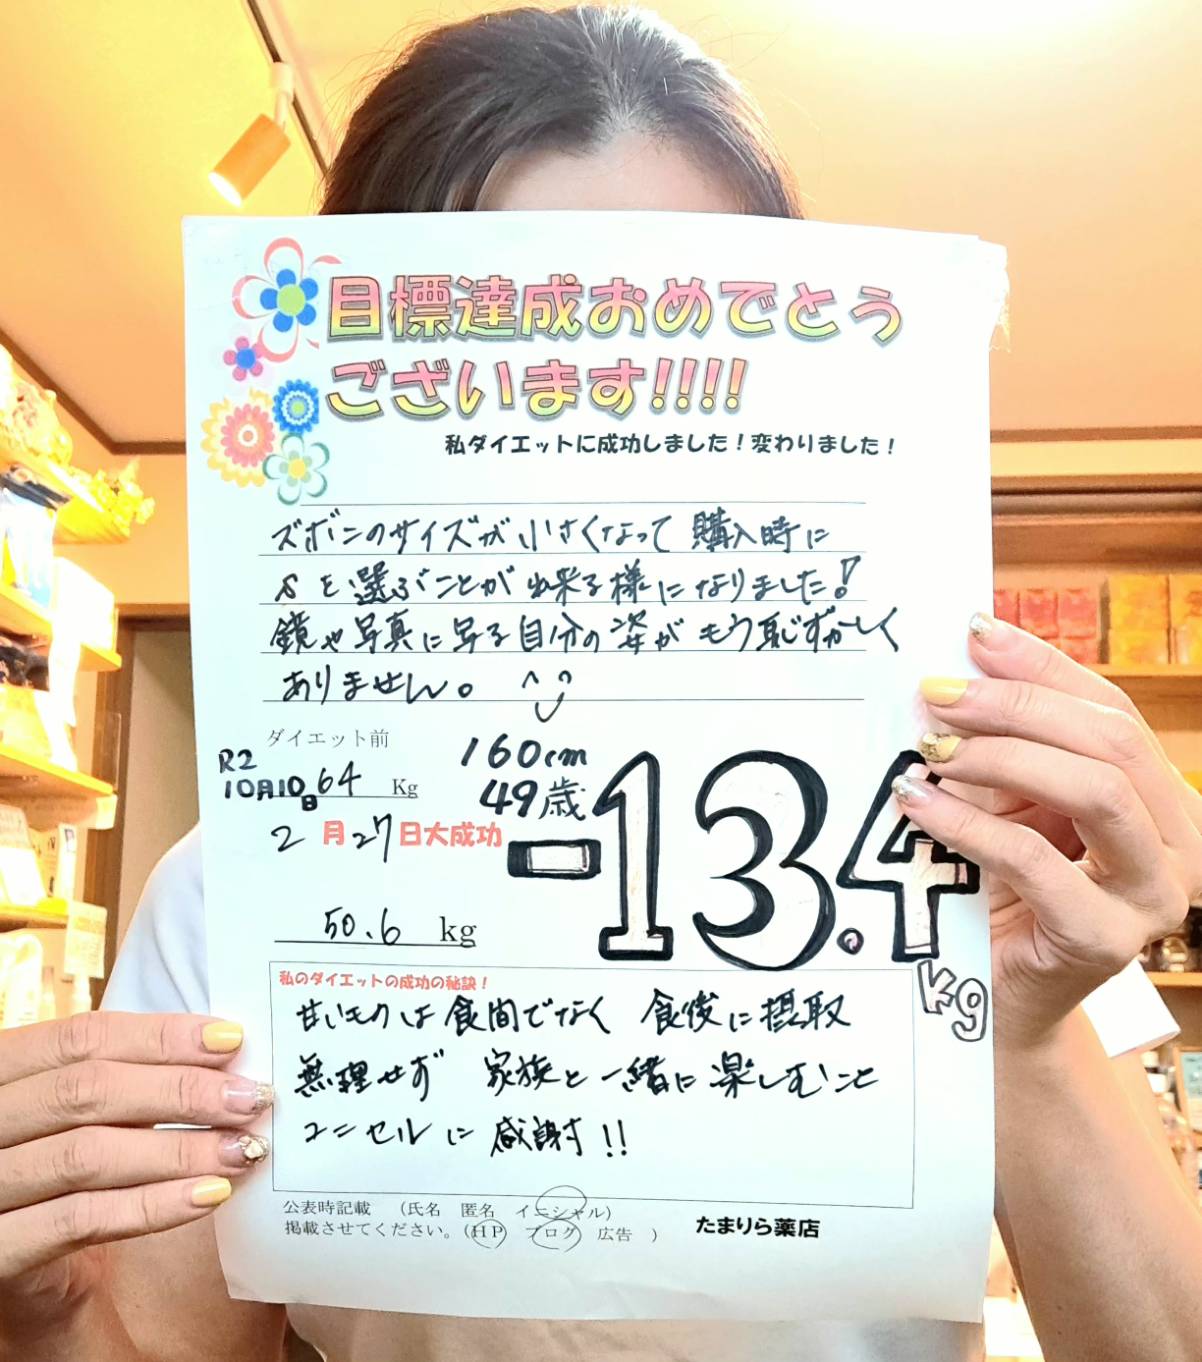 目標達成おめでとう
ございます!!!!
私ダイエットに成功しました！変わりました！
ズボンのサイズが小さくなって 購入時に
Sを選ぶことが出来る様になりました!
鏡や写真に写る自分の姿がもう恥ずかしく
ありません。
ダイエット前
R2
10月10日 64 Kg
160cm
49歳
2月27日大成功
-13.4
kg
50.6 kg
私のダイエットの成功の秘訣！
甘いものは食間でなく 食後に摂取
無理せず 家族と一緒に楽しむこと
ユニセルに感謝す!!
公表時記載 （氏名 匿名 イニシャル）
掲載させてください。（HP ブログ 広告 ）
たまりら薬店